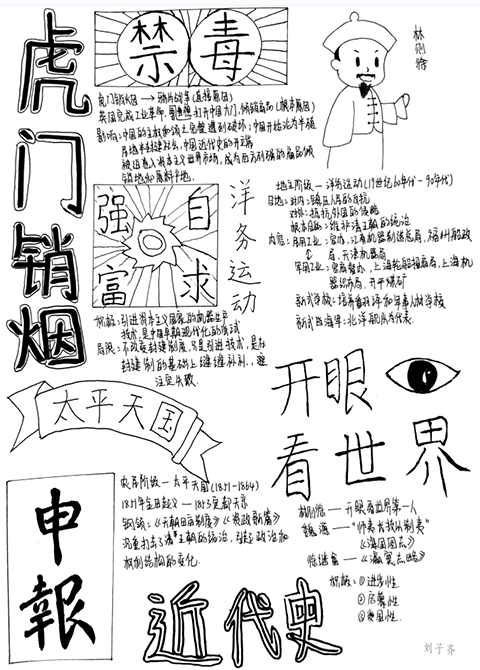 虎门销烟
禁毒
林则徐
虎门销烟 → 鸦片战争(直接原因)
英国完成工业革命,打开中国大门,倾销商品(根本原因)
影响:中国的主权和领土完整遭到破坏;中国开始沦为半殖
民地半封建社会,中国近代史的开端
被迫卷入资本主义世界市场,成为西方列强的商品倾
销地和原料产地.
自强
求富
洋务运动
地主阶级—洋务运动(19世纪60年代-90年代)
目的:对内:镇压人民的反抗
对外:抵抗外国的侵略
根本目的:维护清王朝的统治
内容:军用工业:安庆、江南机器制造总局,福州船政
局,天津机器局
民用工业:官督商办,上海轮船招商局,上海机
器织布局,开平煤矿
新式学校:培养翻译和军事人才学校
新式海军:北洋舰队为代表.
积极:引进资本主义国家的机器生产
技术,是中国早期现代化的尝试
局限:不改变封建制度,只是引进技术,是在
封建制的基础上缝缝补补,注定失败.
开眼
看世界
太平天国
农民阶级—太平天国(1851-1864)
1851年金田起义—1853定都天京
纲领:《天朝田亩制度》《资政新篇》
沉重打击了清王朝的统治,引起政治和
权利结构的变化.
林则徐 — 开眼看世界第一人
魏源 — "师夷长技以制夷"
《海国图志》
徐继畬 — 《瀛寰志略》
积极:①进步性
②启蒙性
③爱国性.
申報
近代史
刘子齐